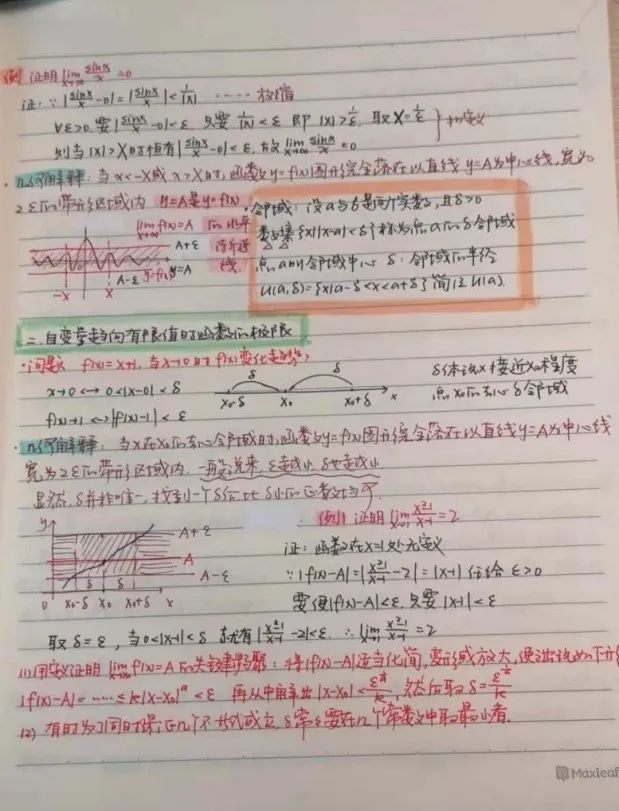 例 证明 lim x→∞ sinx/x =0
证: ∵ |sinx/x -0| = |sinx/x| < 1/|x| ······ 放缩
∀ε>0. 要|sinx/x -0|<ε. 只要 1/|x| <ε 即 |x|>1/ε. 取 X=1/ε } 扣定义
则当 |x|>X时恒有|sinx/x -0|<ε. 故 lim x→∞ sinx/x =0
·几何解释: 当 x<-X或 x>X时, 函数y=f(x)图形完全落在以直线 y=A为中心线, 宽为
2ε的带形区域内 y=A是y=f(x)
lim x→∞ f(x)=A 的水平
渐近线.
A+ε
A-ε y=f(x) y=A
-X X
·邻域: 设a与δ是两个实数, 且δ>0
数集{x||x-a|<δ}称为点a的δ邻域
点a叫邻域中心 δ: 邻域的半径
U(a,δ)={x|a-δ<x<a+δ} 简记U(a).
二. 自变量趋向有限值时函数的极限
·问题: f(x)=x+1, 当x→0时f(x)变化趋势?
x→0 ↔ 0<|x-0|<δ
f(x)→1 ↔ |f(x)-1|<ε
δ δ
x₀-δ x₀ x₀+δ x
δ体现x接近x₀程度
点x₀的去心δ邻域
·几何解释: 当x在x₀的去心邻域时, 函数y=f(x)图形完全落在以直线y=A为中心线
宽为2ε的带形区域内. 一般说来, ε越小, δ也越小
显然, δ并非唯一, 找到一个δ后比δ小的正数均可.
y
A+ε
A
A-ε
δ δ
0 x₀-δ x₀ x₀+δ x
例1 证明 lim x→1 x²-1/x-1 =2
证: 函数在x=1处无定义
∵|f(x)-A|=|x²-1/x-1 -2|=|x-1| 任给 ε>0
要使|f(x)-A|<ε. 只要 |x-1|<ε
取 δ=ε, 当0<|x-1|<δ 就有 |x²-1/x-1 -2|<ε. ∴ lim x→1 x²-1/x-1 =2
(1) 用定义证明 lim f(x)=A的关键步骤: 将|f(x)-A|适当化简, 变形或放大, 使
|f(x)-A|=······≤k|x-x₀|ᵅ<ε 再从中解出|x-x₀|<
然后取δ=
(2) 有时为了同时保证几个不等式成立, δ常需要在几个常数中取最小者.
Maxleaf